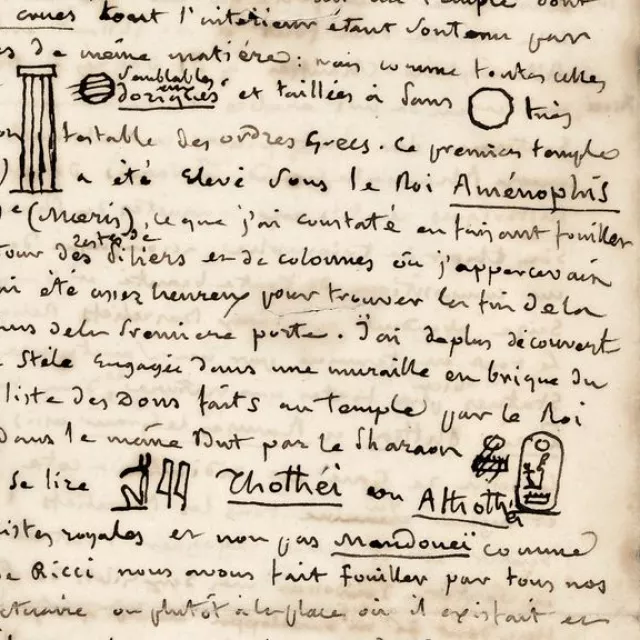 dont
crues dont l'intérieur étant soutenu par
de même matière: mais comme toutes celles
semblables
doriques et taillées à pans très
des ordres Grecs. Ce premier temple
a été élevé sous le Roi Aménophis
(Moeris), ce que j'ai constaté en faisant fouiller
restes de
des piliers et de colonnes où j'appercevais
été assez heureux pour trouver la fin de la
de la première porte. J'ai de plus découvert
Stèle engagée dans une muraille en brique du
liste des Dons faits au Temple par le Roi
dans le même But par le Pharaon
se lire Thothéi ou Athothi
royales et non pas Mandoueï comme
Ricci nous avons fait fouiller par tous nos
ou plutôt à la place où il existait et